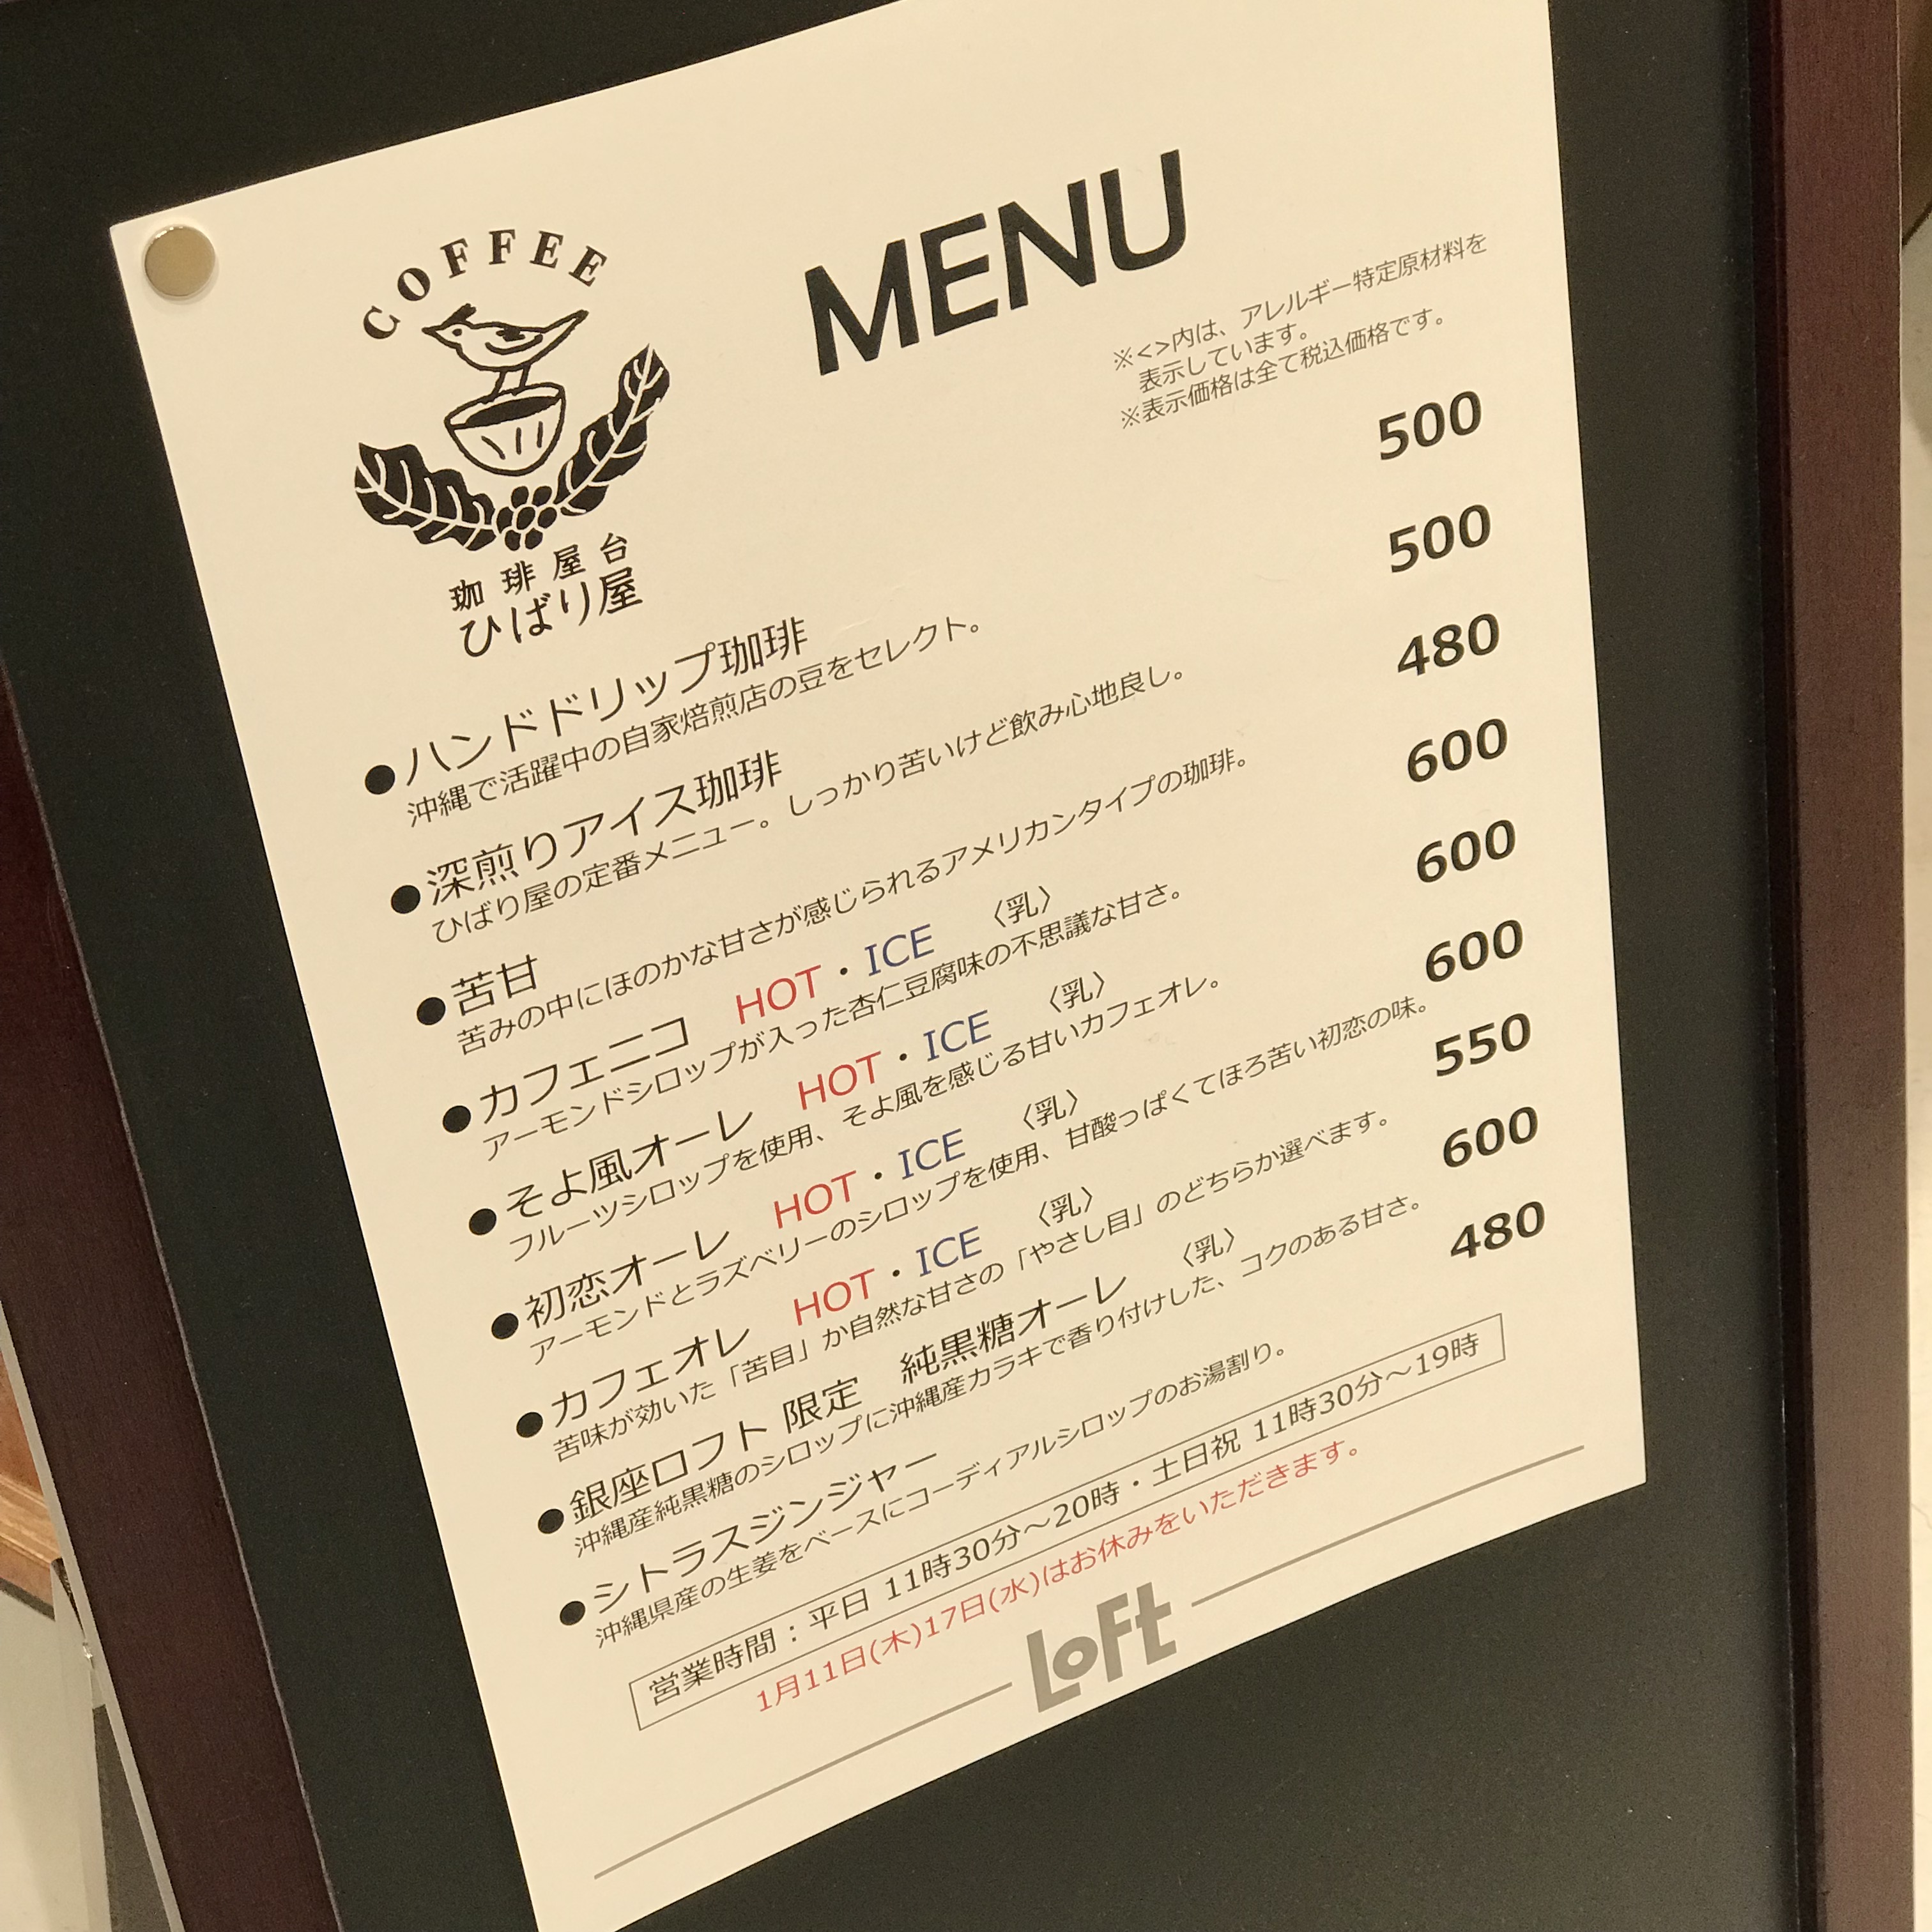 COFFEE
珈琲屋台
ひばり屋
MENU
※<>内は、アレルギー特定原材料を
表示しています。
※表示価格は全て税込価格です。
●ハンドドリップ珈琲 500
沖縄で活躍中の自家焙煎店の豆をセレクト。
●深煎りアイス珈琲 500
ひばり屋の定番メニュー。しっかり苦いけど飲み心地良し。
●苦甘 480
苦みの中にほのかな甘さが感じられるアメリカンタイプの珈琲。
●カフェニコ HOT・ICE 〈乳〉 600
アーモンドシロップが入った杏仁豆腐味の不思議な甘さ。
●そよ風オーレ HOT・ICE 〈乳〉 600
フルーツシロップを使用、そよ風を感じる甘いカフェオレ。
●初恋オーレ HOT・ICE 〈乳〉 600
アーモンドとラズベリーのシロップを使用、甘酸っぱくてほろ苦い初恋の味。
●カフェオレ HOT・ICE 〈乳〉 550
苦味が効いた「苦目」か自然な甘さの「やさし目」のどちらか選べます。
●銀座ロフト 限定 純黒糖オーレ 〈乳〉 600
沖縄産純黒糖のシロップに沖縄産カラキで香り付けした、コクのある甘さ。
●シトラスジンジャー 480
沖縄県産の生姜をベースにコーディアルシロップのお湯割り。
営業時間：平日 11時30分～20時・土日祝 11時30分～19時
1月11日(木)17日(水)はお休みをいただきます。
LOFT